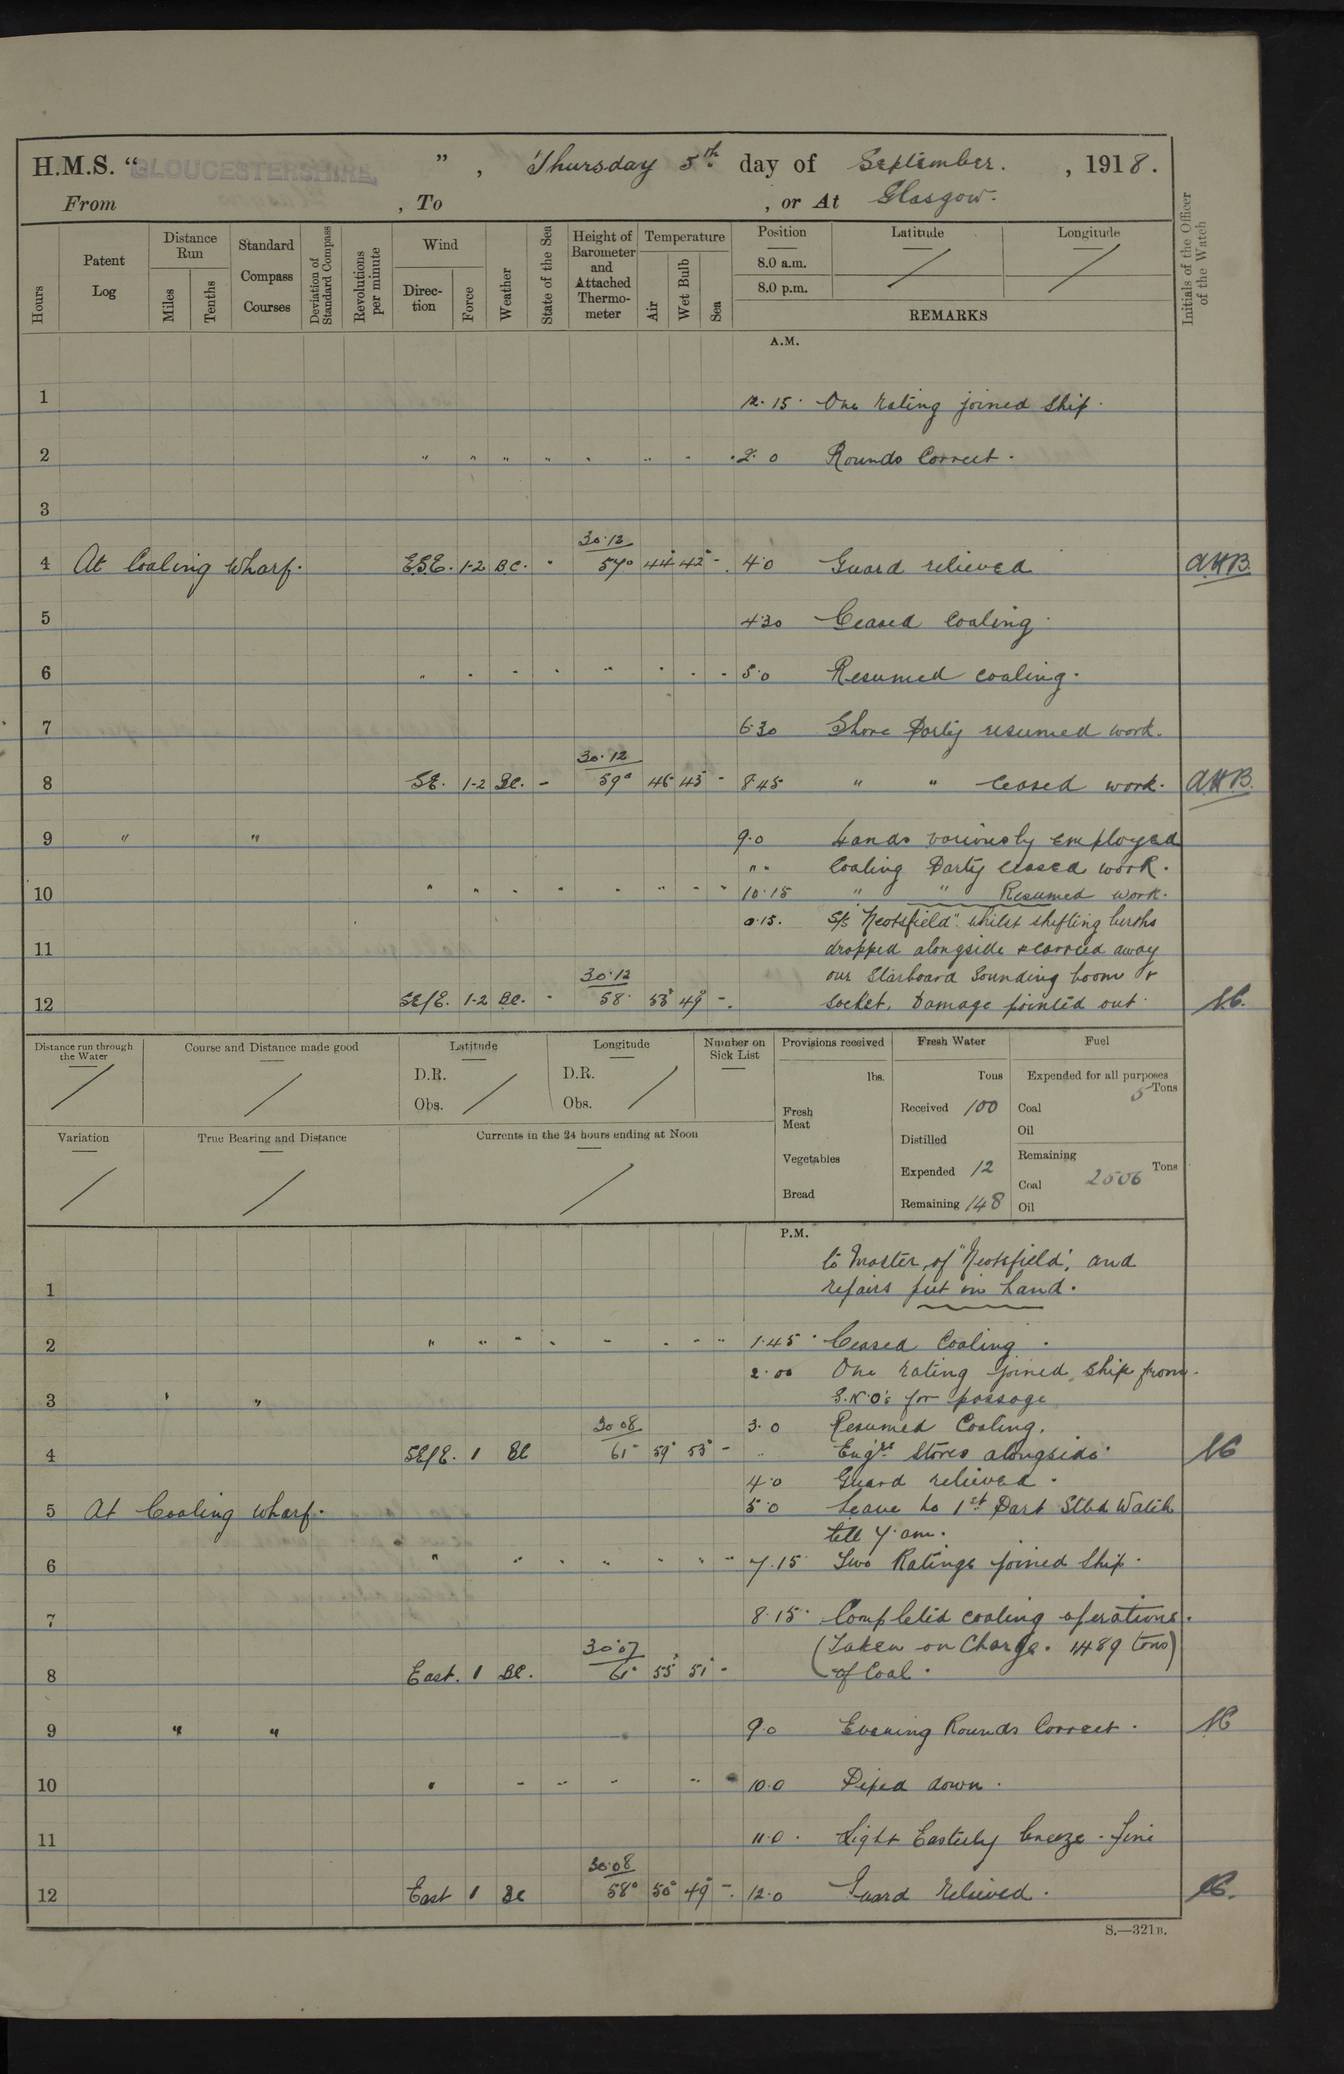 H.M.S. “GLOUCESTERSHIRE”, Thursday 5th day of September. , 1918.
From , To , or At Glasgow.
Hours
Patent Log
Distance Run
Miles
Tenths
Standard Compass Courses
Deviation of Standard Compass
Revolutions per minute
Wind
Direction
Force
Weather
State of the Sea
Height of Barometer and Attached Thermometer
Temperature
Air
Wet Bulb
Sea
Position
8.0 a.m.
8.0 p.m.
Latitude
Longitude
REMARKS
Initials of the Officer of the Watch
A.M.
1 12.15. One rating joined ship.
2 " " " " " " " 2.0 Rounds Correct.
3
30.12
4 At Coaling Wharf. E.S.E. 1-2 B.C. 57° 44° 42° - 4.0 Guard relieved A.H.B.
5 4.30 Ceased Coaling.
6 5.0 Resumed coaling.
7 6.30 Shore Party resumed work.
30.12
8 SE. 1-2 BC. - 59° 46 45 - 8.45 " " ceased work. A.H.B.
9 " " 9.0 Hands variously employed
" " Coaling Party ceased work.
10 10.15 " " Resumed work.
0.15. S/S "Neotsfield" whilst shifting berths
11 dropped alongside & carried away
30.12 our Starboard Sounding boom &
12 SE/E. 1-2 BC. - 58 53° 49° - socket. Damage pointed out
Distance run through the Water
Course and Distance made good
Latitude
D.R.
Obs.
Longitude
D.R.
Obs.
Number on Sick List
Provisions received
lbs.
Fresh Meat
Vegetables
Bread
Fresh Water
Tons
Received 100
Distilled
Expended 12
Remaining 148
Fuel
Expended for all purposes
Tons
Coal 5
Oil
Remaining
Tons
Coal 2506
Oil
Variation
True Bearing and Distance
Currents in the 24 hours ending at Noon
P.M.
to Master of "Neotsfield", and
1 repairs put in hand.
2 1.45 Ceased Coaling.
2.00 One rating joined ship from
3 S.N.O's for passage
30.08 3.0 Resumed Coaling.
4 SE/E. 1 BC 61° 59° 53° - " Engrs Stores alongside.
4.0 Guard relieved.
5 At Coaling Wharf. 5.0 Leave to 1st Part Stbd Watch
till 7 am.
6 7.15 Two Ratings joined Ship.
7 8.15. Completed coaling operations.
30.07 (Taken on Charge. 1489 tons)
8 East. 1 BC. 61° 55° 51° - of Coal.
9 " " 9.0 Evening Rounds Correct.
10 10.0 Piped down.
11 11.0. Light Easterly breeze. fine
30.08
12 East 1 BC 58° 50° 49° - 12.0 Guard Relieved.
S.—321B.